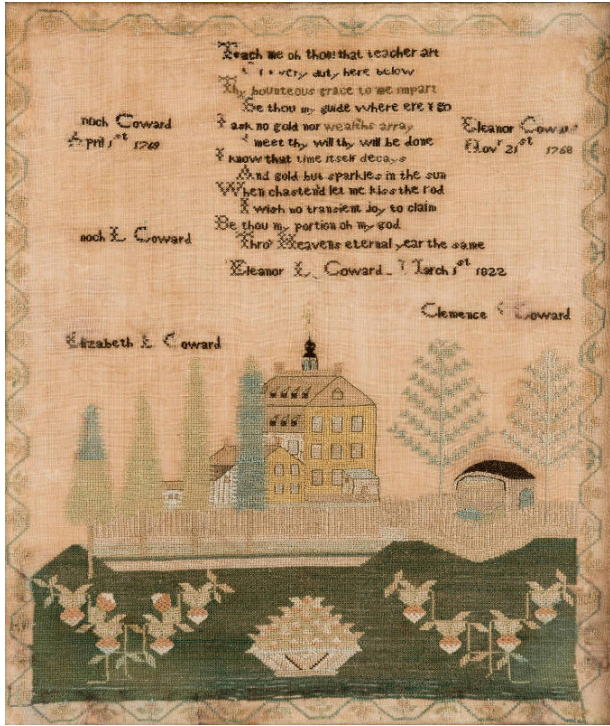 Teach me oh thou that teacher art
every duty here below
Thy bounteous grace to me impart
Be thou my guide where ere I go
I ask no gold nor wealths array
meet thy will thy will be done
I know that time itself decays
And gold but sparkles in the sun
When chastend let me kiss the rod
I wish no transient joy to claim
Be thou my portion oh my god
Thro' Heavens eternal year the same
Eleanor L Coward March 1st 1822
noch Coward
April 1st 1769
Eleanor Coward
Novr 21st 1768
noch L Coward
Clemence Coward
Elizabeth L Coward